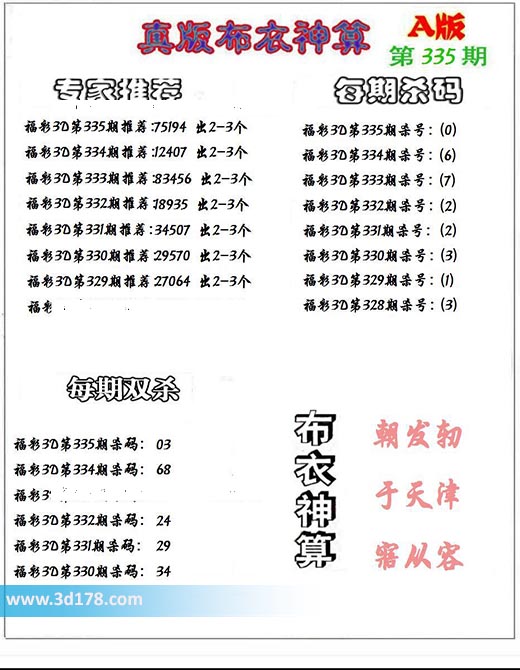 真版布衣神算
A版
第 335 期
专家推荐
福彩3D第335期推荐:75194 出2-3个
福彩3D第334期推荐:12407 出2-3个
福彩3D第333期推荐:83456 出2-3个
福彩3D第332期推荐:18935 出2-3个
福彩3D第331期推荐:34507 出2-3个
福彩3D第330期推荐:29570 出2-3个
福彩3D第329期推荐:27064 出2-3个
福彩
每期杀码
福彩3D第335期杀号：(0)
福彩3D第334期杀号：(6)
福彩3D第333期杀号：(7)
福彩3D第332期杀号：(2)
福彩3D第331期杀号：(2)
福彩3D第330期杀号：(3)
福彩3D第329期杀号：(1)
福彩3D第328期杀号：(3)
每期双杀
福彩3D第335期杀码： 03
福彩3D第334期杀码： 68
福彩
福彩3D第332期杀码： 24
福彩3D第331期杀码： 29
福彩3D第330期杀码： 34
布衣神算
朝发轫
于天津
窘从容
www.3d178.com